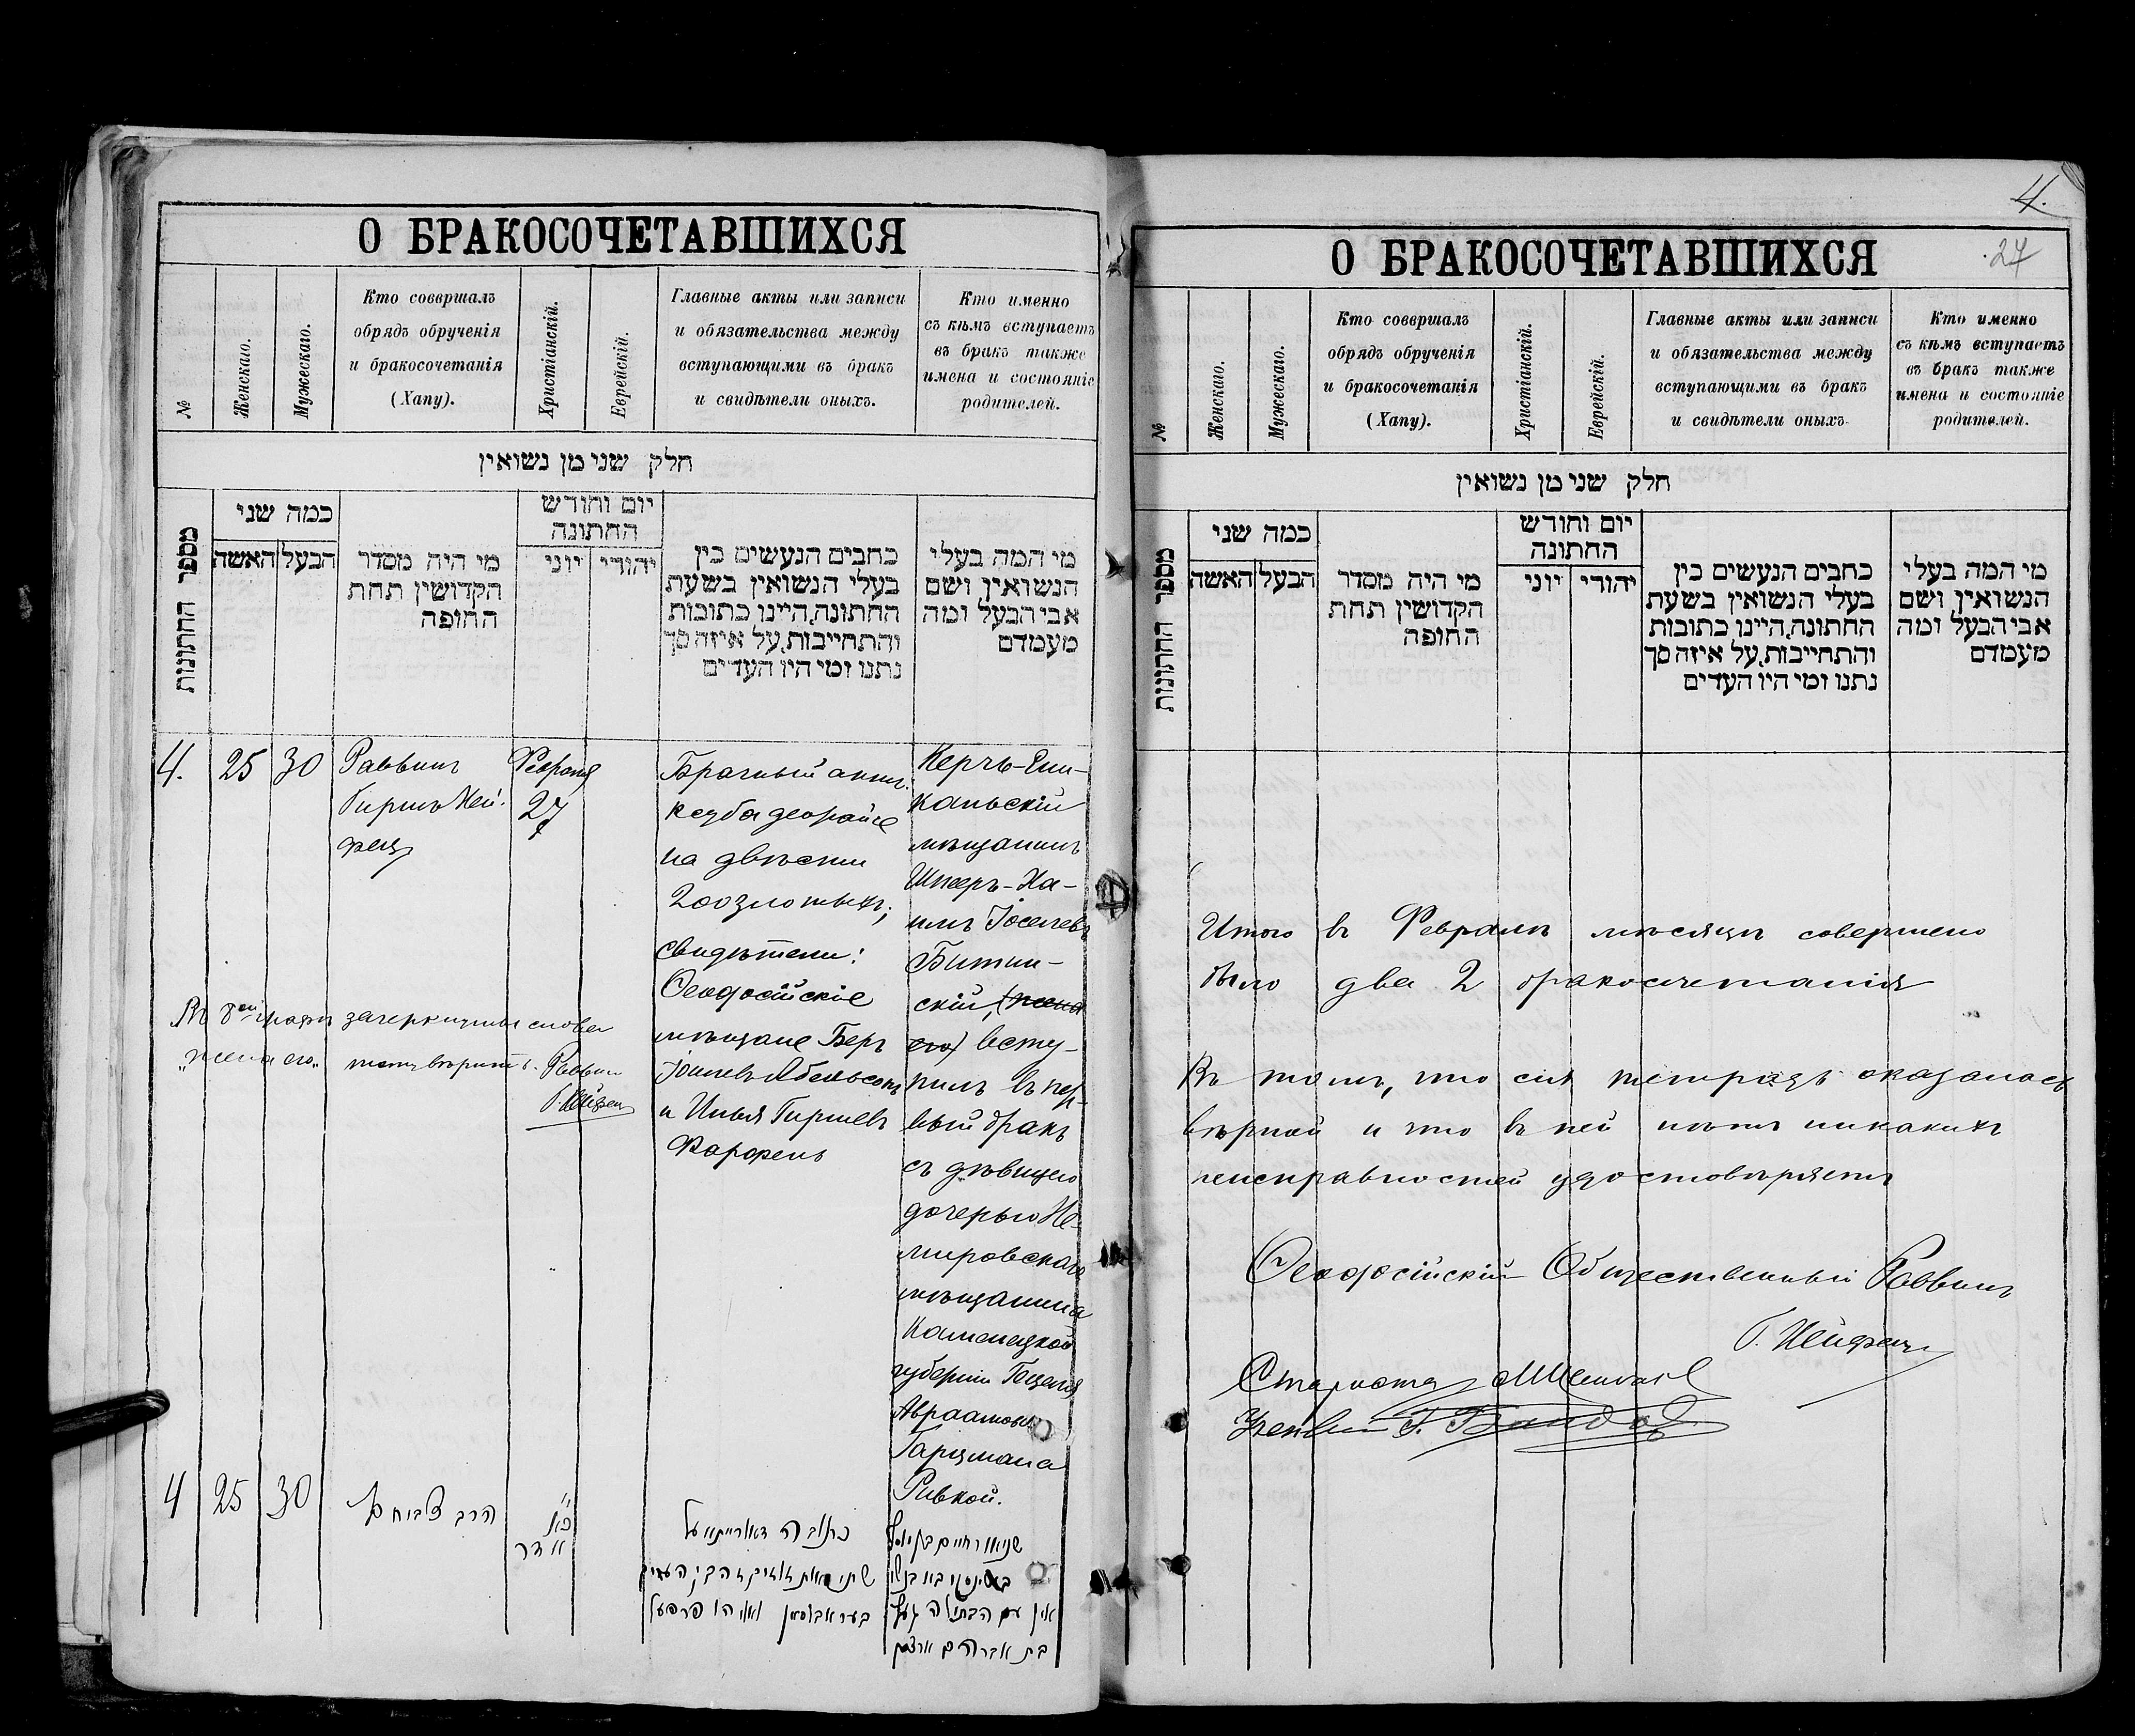 О БРАКОСОЧЕТАВШИХСЯ
№
Женскаго.
Мужескаго.
Кто совершалъ
обрядъ обрученія
и бракосочетанія
(Хапу).
Христіанскій.
Еврейскій.
Главные акты или записи
и обязательства между
вступающими въ бракъ
и свидѣтели оныхъ.
Кто именно
съ кѣмъ вступаетъ
въ бракъ также
имена и состояніе
родителей.
חלק שני מן נשואין
מספר החתונות
כמה שני
האשה
הבעל
מי היה מסדר
הקדושין תחת
החופה
יום וחודש
החתונה
יוני
יהודי
כתבים הנעשים בין
בעלי הנשואין בשעת
החתונה, היינו כתובות
והתחייבות, על איזה סך
נתנו ומי היו העדים
מי המה בעלי
הנשואין, ושם
אבי הבעל ומה
מעמדם
4.
25
30
Раввинъ
Гиршъ Хей-
фецъ
Февраля
27
Брачный актъ
ксуба деорайсе
на двѣсти
200 злотыхъ;
свидѣтели:
Ѳеодосійскіе
мѣщане Беръ
Іоилевъ Абельсонъ
и Илья Гиршевъ
Фарфель
Керчь-Ени-
кальскій
мѣщанинъ
Шнееръ-Ха-
имъ Іоселевъ
Битин-
скій, (жена
его) всту-
пилъ въ пер-
вый бракъ
съ дѣвицею
дочерью Не-
мировскаго
мѣщанина
Каменецкой
губерніи Гецеля
Авраамова
Гарцмана
Ривкой.
Въ 8ой графѣ зачеркнутыя слова
„жена его„ не вѣрить. Раввинъ
Г. Хейфецъ
4
25
30
הרב
אדר
כתובה דאורייתא על
О БРАКОСОЧЕТАВШИХСЯ
4.
27
№
Женскаго.
Мужескаго.
Кто совершалъ
обрядъ обрученія
и бракосочетанія
(Хапу).
Христіанскій.
Еврейскій.
Главные акты или записи
и обязательства между
вступающими въ бракъ
и свидѣтели оныхъ.
Кто именно
съ кѣмъ вступаетъ
въ бракъ также
имена и состояніе
родителей.
חלק שני מן נשואין
מספר החתונות
כמה שני
האשה
הבעל
מי היה מסדר
הקדושין תחת
החופה
יום וחודש
החתונה
יוני
יהודי
כתבים הנעשים בין
בעלי הנשואין בשעת
החתונה, היינו כתובות
והתחייבות, על איזה סך
נתנו ומי היו העדים
מי המה בעלי
הנשואין, ושם
אבי הבעל ומה
מעמדם
Итого въ Февралѣ мѣсяцѣ совершено
было два 2 бракосочетанія
Въ томъ, что сія тетрадь оказалась
вѣрной и что въ ней нѣтъ никакихъ
неисправностей удостовѣряетъ
Ѳеодосійскій Общественный Раввинъ
Г. Хейфецъ
Староста